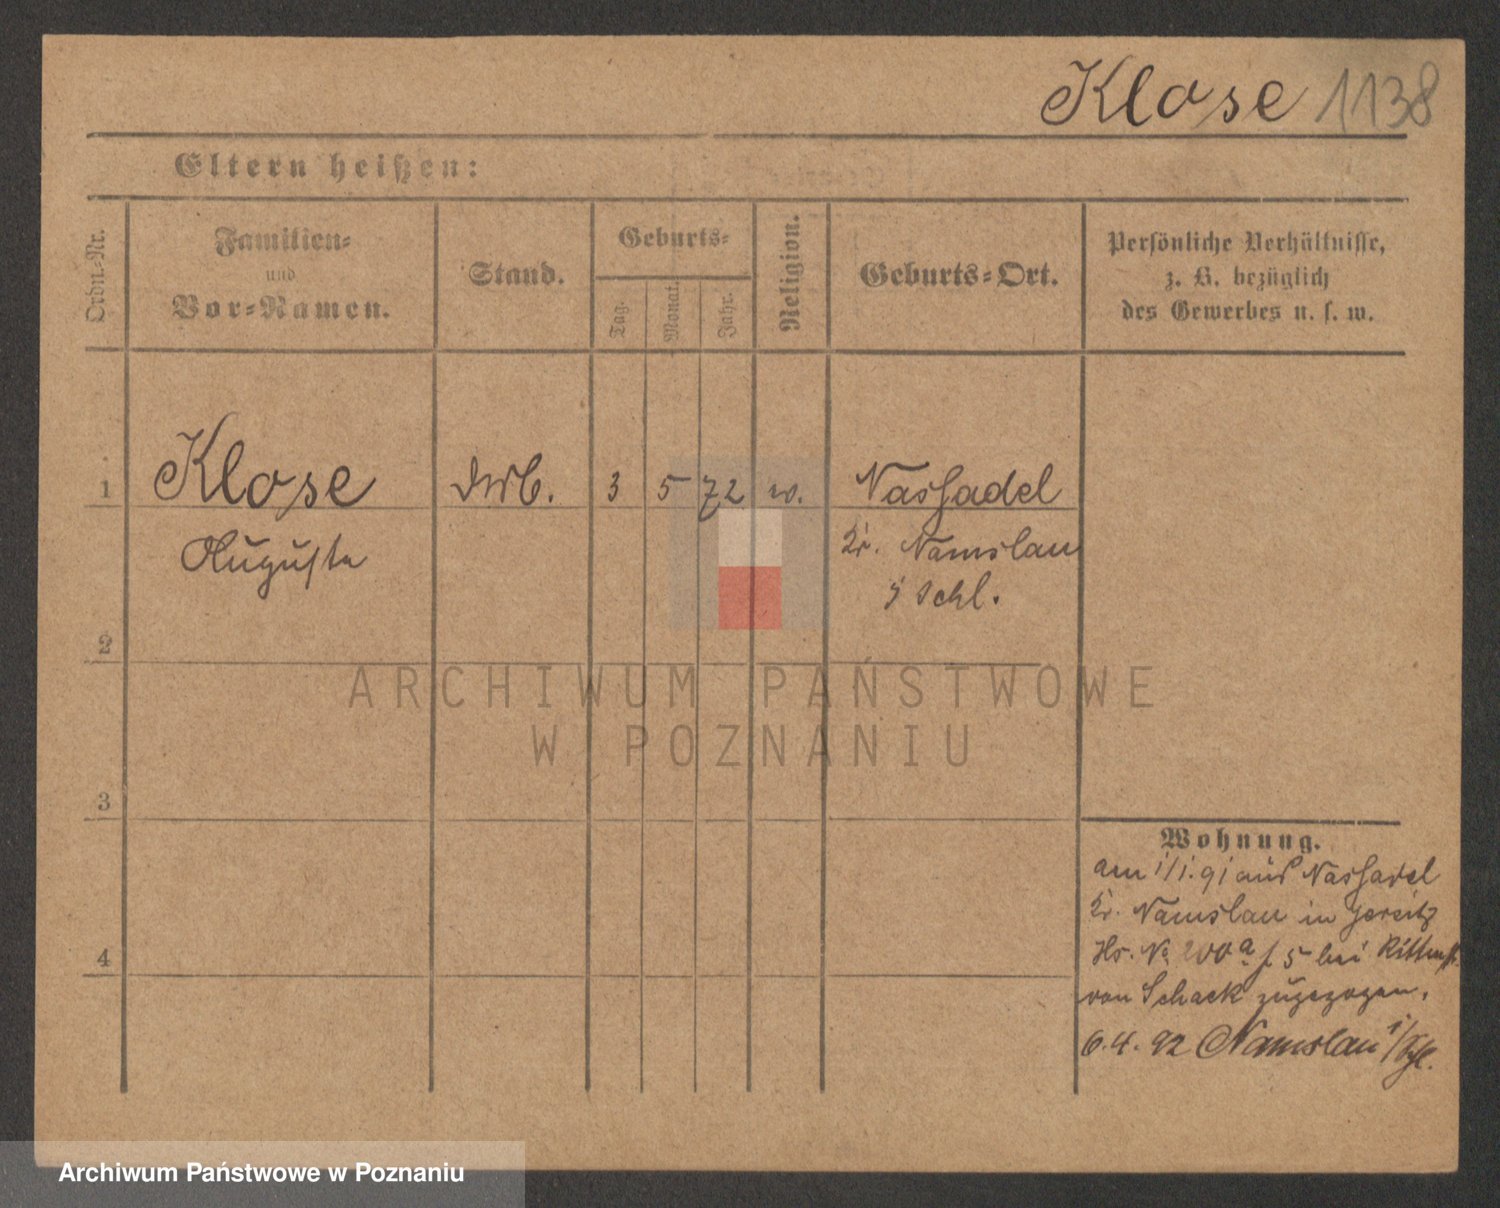 Klose 1138
Eltern heißen:
Ordn.-Nr.
Familien-
und
Vor-Namen.
Stand.
Geburts-
Tag.
Monat.
Jahr.
Religion.
Geburts-Ort.
Persönliche Verhältnisse,
z. B. bezüglich
des Gewerbes u. s. w.
1 Klose 3 5 72 Nassadel
Auguste Kr. Namslau
i Schl.
2
3
4
ARCHIWUM PAŃSTWOWE
W POZNANIU
Wohnung.
am 1/1. 91 aus Nassadel
Kr. Namslau in Jersitz
Hs. No 200a f 5 bei
von Schack zugezogen.
6.4.92 Namslau i/Schl.
Archiwum Państwowe w Poznaniu